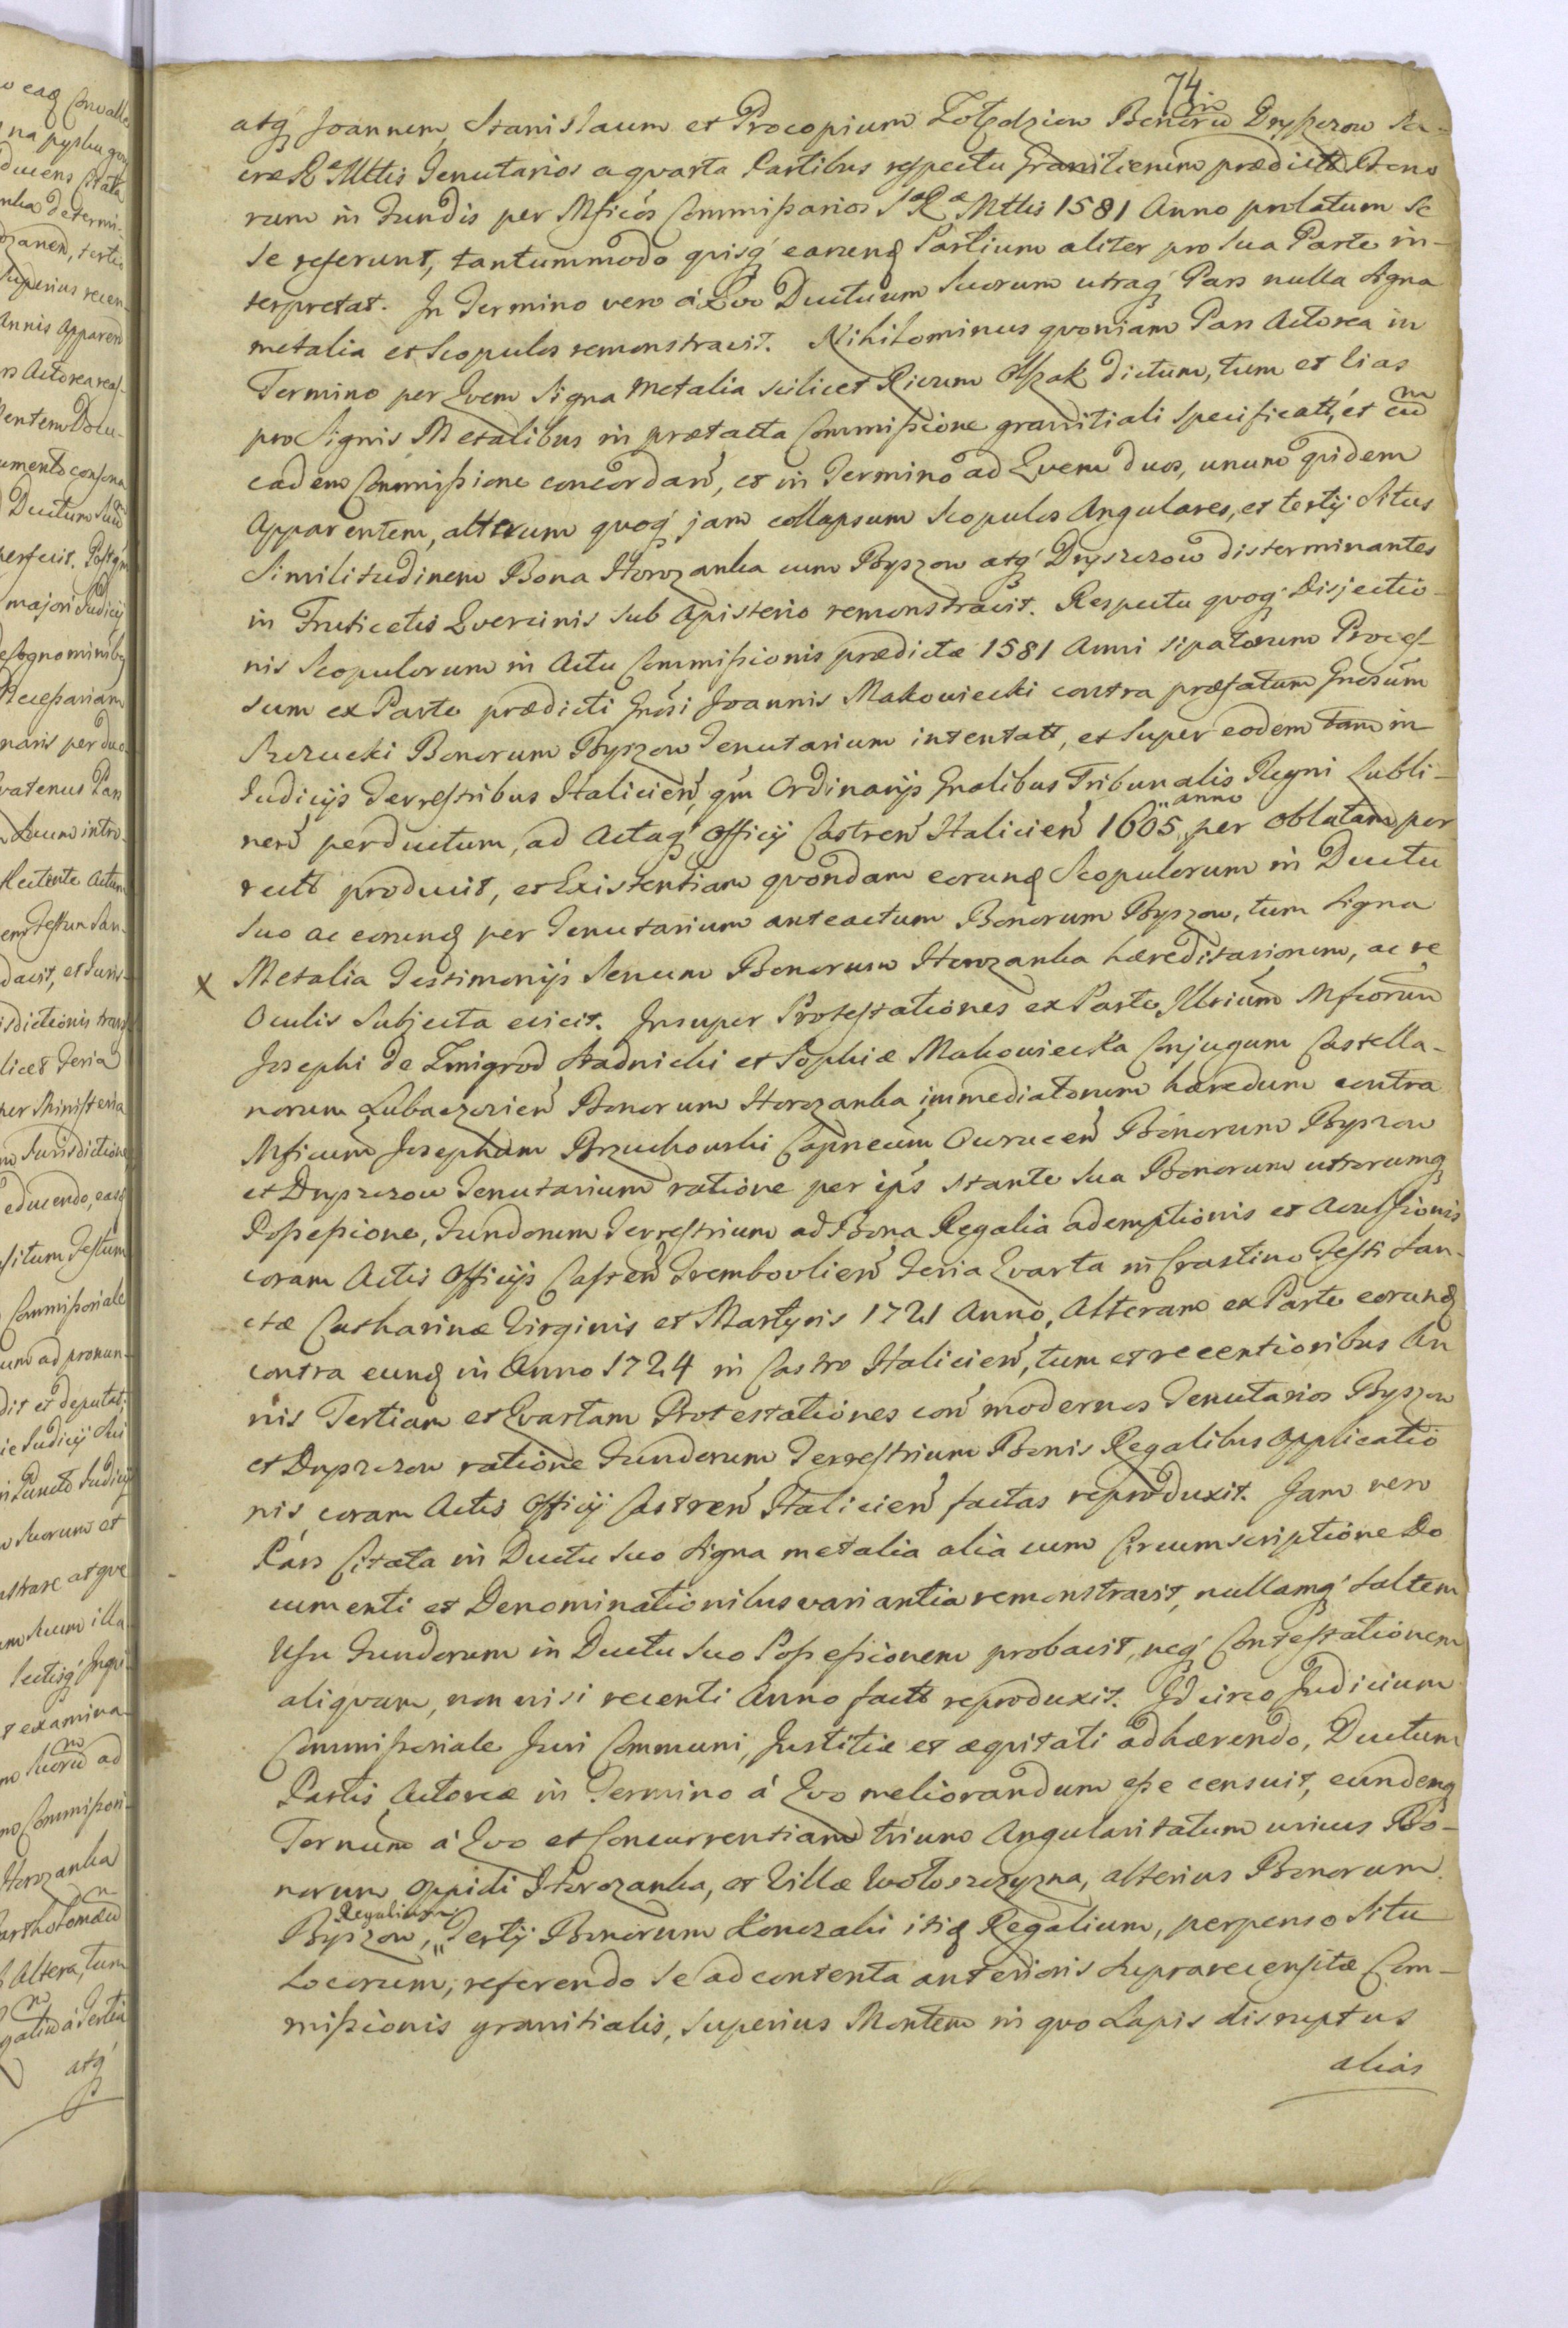 74
atq́ Joannem, Stanislaum et Procopium Bonoru Dryszczow Sa-
cræ Rᵃ Mttis Tenutarios a quarta Partibus respectu Granitierum prædictt Bono
rum in Fundis per Mficos Commissarios Sᵃ Rᵃ Mttis 1581 Anno pnlatum Se
se referunt, tantummodo quisq́ earund Partium aliter pro sua Parte in-
terpretat. In Termino vero á Qvo Ductuum Suorum utraq́ Pars nulla Signa
metalia et Scopulos remonstravit. Nihilominus qvoniam Pars Actorea in
Termino per Qvem Signa metalia scilicet Rivum dictum, tum et lias
pro Signis Metalibus in prætacta Commissione granitiali specificatt, et cu
eadem Commissione concordań, et in Termino ad Qvem duos, unum qvidem
Apparentem, alterum qvoq́ jam collapsum Scopulos Angulares, et tertij Situs
Similitudinem Bona Horozanka cum Byszow atq́ Dryszczow disterminantes
in Fruticetis Qvercinis sub Apisterio remonstravit. Respectu qvoq́ Disjectio-
nis Scopulorum in Actu Commissionis prædictæ 1581 Anni sipatorum Proces-
sum ex Parte prædicti Gnósi Joannis Makowiecki contra præfatum Gnosum
Bonorum Byszow Tenutarium intentatt, et super eodem tam in
Judicijs Terrestribus Halicień, qm Ordinarijs Gnalibus Tribunalis Regni Lubli-
neń perductum, ad Actaq́ Officij Castreń Halicień 1605 anno per oblatam por
rectt producit, et Existentiam qvondam eorund Scopulorum in Ductu
suo ac eorund per Tenutarium anteactum Bonorum Byszow, tum Signa
x Metalia Testimonijs Senum Bonorum Horozanka hæreditariorum, ac re
Oculis Subjecta evicit. Insuper Protestationes ex Parte Illrium Mficorum
Josephi de Zmigrod Stadnicki et Sophiæ Makowiecka Conjugum Castella-
norum Lubaczovień Bonorum Horozanka immediatorum hæredum contra
Mficum Josephum Brzuchowski Capneum Owruceń Bonorum Byszow
et Dryszczow Tenutarium ratione per ips stante sua Bonorum utrorumq
Possessione, Fundorum Terrestrium ad Bona Regalia ademptionis et Avulsionis
coram Actis Officijs Castreń Trembovlień Feria Qvarta in Crastino Festi San-
ctæ Catharinæ Virginis et Martyris 1721 Anno, Alteram ex Parte eorund
contra eund in Anno 1724 in Castro Halicień, tum et recentioribus An
nis Tertiam et Qvartam Protestationes coń modernos Tenutarios Byszow
et Dryszczow ratione Fundorum Terrestrium Bonis Regalibus Applicatio
nis coram Actis Officij Castreń Halicień factas reproduxit. Jam vero
Pars Citata in Ductu suo Signa metalia alia cum Circumscriptione Do
cumenti et Denominationibus variantia remonstravit, nullamq́ saltem
Usu Fundorum in Ductu suo Possessionem probavit, neq́ Contestationem
aliqvam, non nisi recenti Anno factt reproduxit. Idcirco Judicium
Commissoriale Juri Communi, Justitiæ et æqvitati adhærendo, Ductum
Partis Actoreæ in Termino á Qvo meliorandum esse censuit, eundemq
Ternum á Qvo et Concurrentiam trium Angularitatum unius Bo-
norum Oppidi Horozanka, et Villæ Wołoszczyzna, alterius Bonorum
Byszow, Regalium, Tertij Bonorum itid Regalium, perpenso Situ
Locorum, referendo se ad contenta anterioris suprarecensitæ Com-
missionis granitialis, Superius Montem in qvo Lapis disruptus
alias